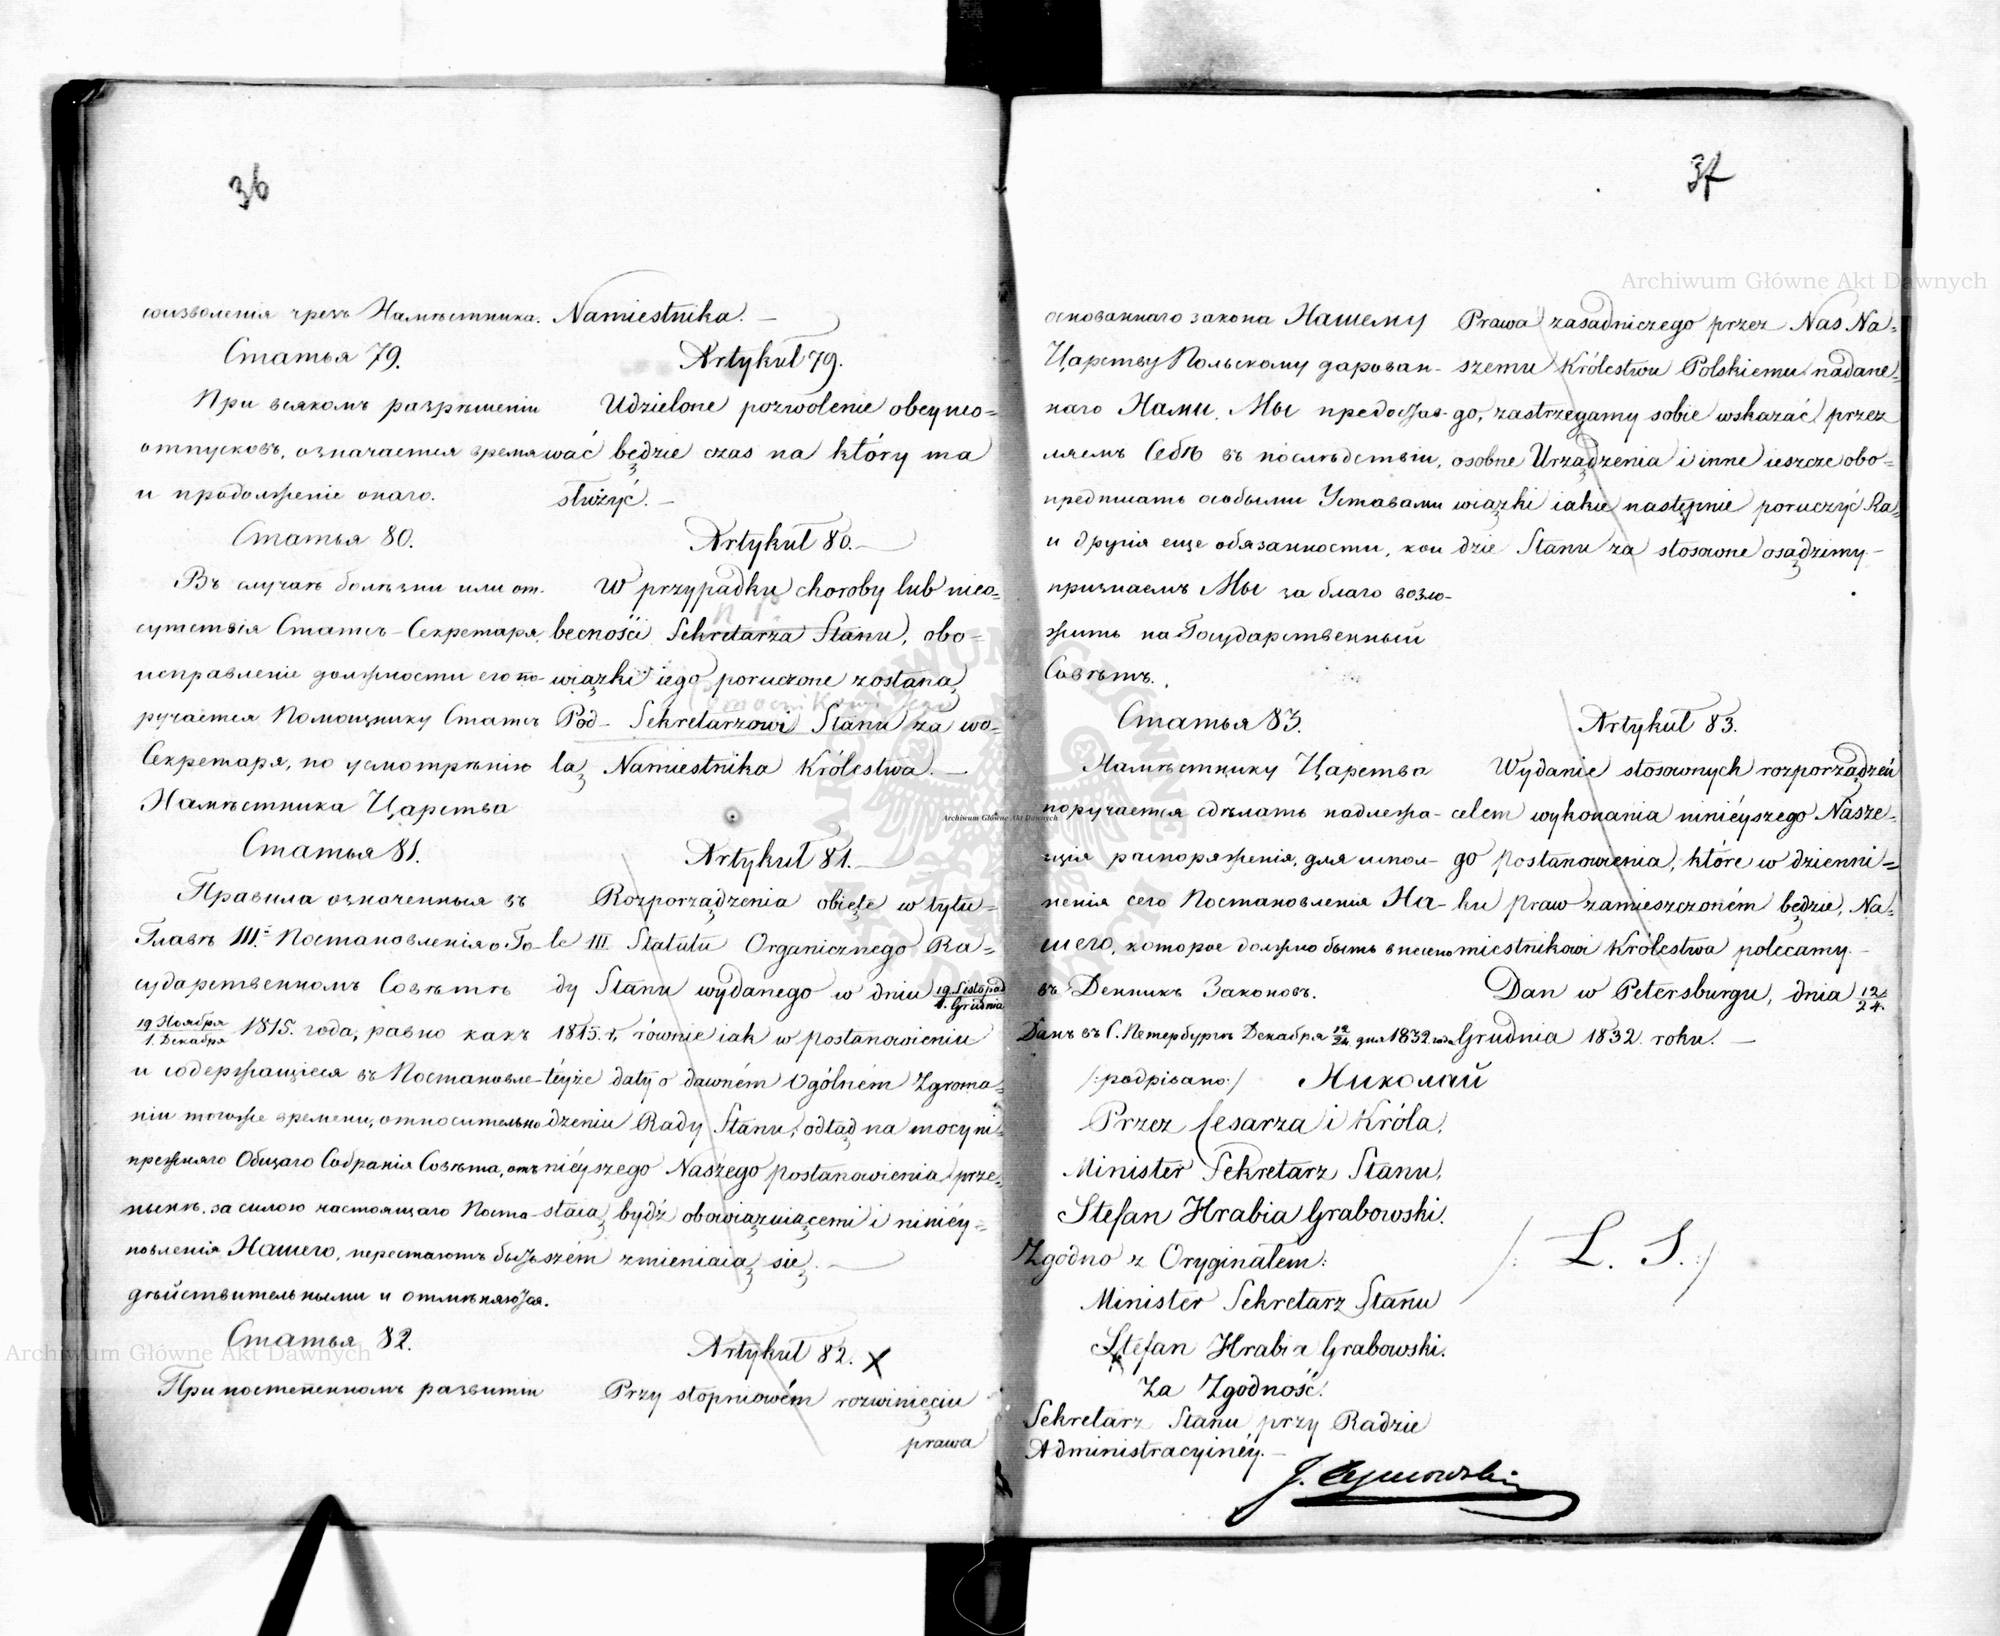 36
соизволенія чрезъ Намѣстника.
Статья 79.
При всякомъ разрѣшеніи
отпусковъ, означается время
и продолженіе онаго.
Статья 80.
Въ случаѣ болѣзни или от-
сутствія Статсъ-Секретаря,
исправленіе должности его по-
ручается Помощнику Статсъ
Секретаря, по усмотрѣнію
Намѣстника Царства
Статья 81.
Правила означенныя въ
Главѣ III.й Постановленія о Го-
сударственномъ Совѣтѣ
19 Ноября / 1. Декабря 1815. года, равно какъ
и содержащіеся въ Постановле-
ніи тогоже времени, относительно
прежняго Общаго Собранія Совѣта, от-
нынѣ, за силою настоящаго Поста-
новленія Нашего, перестаютъ быть
дѣйствительными и отмѣняются.
Статья 82.
При постепенномъ развитіи
Namiestnika. —
Artykuł 79.
Udzielone pozwolenie obeymo=
wać będzie czas na który ma
służyć. —
Artykuł 80. —
W przypadku choroby lub nieo=
becności Sekretarza Stanu, obo=
wiązki iego poruczone zostaną
Pod-Sekretarzowi Stanu za wo=
lą Namiestnika Królestwa. —
Artykuł 81. —
Rozporządzenia obięte w tytu=
le III. Statutu Organicznego Ra=
dy Stanu wydanego w dniu 19. Listopad / 1. Grudnia
1815. r, równie iak w postanowieniu
teyże daty o dawném Ogólném Zgroma=
dzeniu Rady Stanu, odtąd na mocy ni=
nieyszego Naszego postanowienia prze=
staią bydź obowiązuiącemi i niniéy=
szém zmieniaią się. —
Artykuł 82. X
Przy stopniowém rozwinięciu
prawa
37
основаннаго закона Нашему
Царству Польскому дарован-
наго Нами, Мы предостав-
ляемъ Себѣ въ послѣдствіи,
предписать особыми Уставами
и другія еще обязанности, кои
признаемъ Мы за благо возло-
жить на Государственный
Совѣтъ.
Статья 83.
Намѣстнику Царства
поручается сдѣлать надлежа-
щія распоряженія, для испол-
ненія сего Постановленія На-
шего, которое должно быть внесено
въ Денникъ Законовъ.
Данъ въ С. Петербургѣ Декабря 12/24. дня 1832. года
Prawa zasadniczego przez Nas Na=
szemu Królestwu Polskiemu nadane=
go, zastrzegamy sobie wskazać przez
osobne Urządzenia i inne ieszcze obo=
wiązki iakie następnie poruczyć Ra=
dzie Stanu za stosowne osądzimy. —
Artykuł 83.
Wydanie stosownych rozporządzeń
celem wykonania ninieyszego Nasze=
go postanowienia, które w dzienni=
ku praw zamieszczoném będzie, Na=
miestnikowi Królestwa polecamy. —
Dan w Petersburgu, dnia 12/24.
Grudnia 1832. roku. —
/:podpisano:/ Николай
Przez Cesarza i Króla,
Minister Sekretarz Stanu,
Stefan Hrabia Grabowski.
/: L. S.:/
Zgodno z Oryginałem:
Minister Sekretarz Stanu
Stefan Hrabia Grabowski.
Za Zgodność:
Sekretarz Stanu przy Radzie
Administracyinéy. —
J. Tymowski
Archiwum Główne Akt Dawnych
Archiwum Główne Akt Dawnych
Archiwum Główne Akt Dawnych